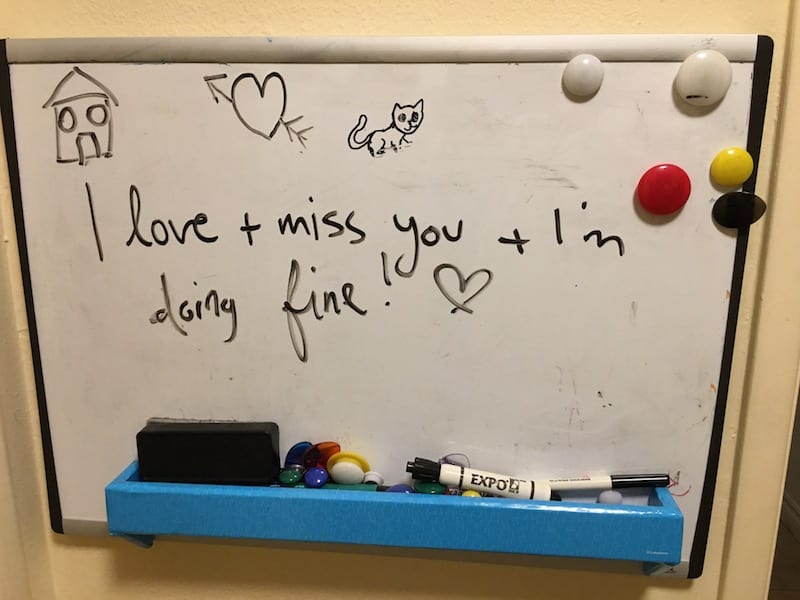 I love + miss you + I'm
doing fine!
EXPO